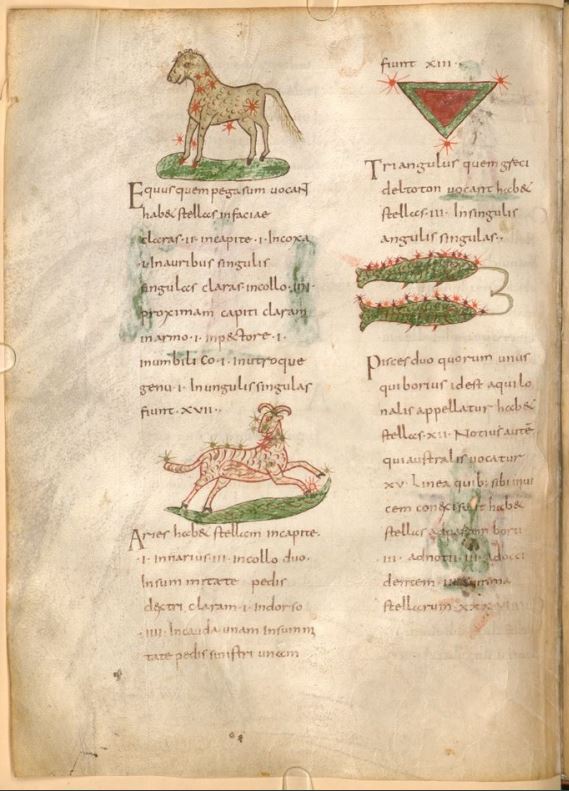 Equus quem pegasum vocant
hab& stellas in faciae
claras · II · in capite · I · In coxa
· I · In auribus singulis
singulas claras · in collo · IIII ·
proximam capiti claram
in armo · I · in pectore · I ·
in umbilico · I · in utroque
genu · I · In ungulis singulas
fiunt · XVII ·
Aries hab& stellam in capite ·
· I · in naribus · III · in collo duo ·
In summitate pedis
dextri claram · I · in dorso
· IIII · In cauda unam In summi
tate pedis sinistri unam
fiunt XIII ·
Triangulus quem greci
deltoton vocant hab&
stellas · III · In singulis
angulis singulas ·
Pisces duo quorum unus
qui borius id est aquilo
nalis appellatur hab&
stellas · XII · Notius autē
qui australis vocatur
XV Linea qua sibi invi
cem conexi sunt hab&
stellas ad borii
· III · ad notii · III · ad occi
dentem
stellarum